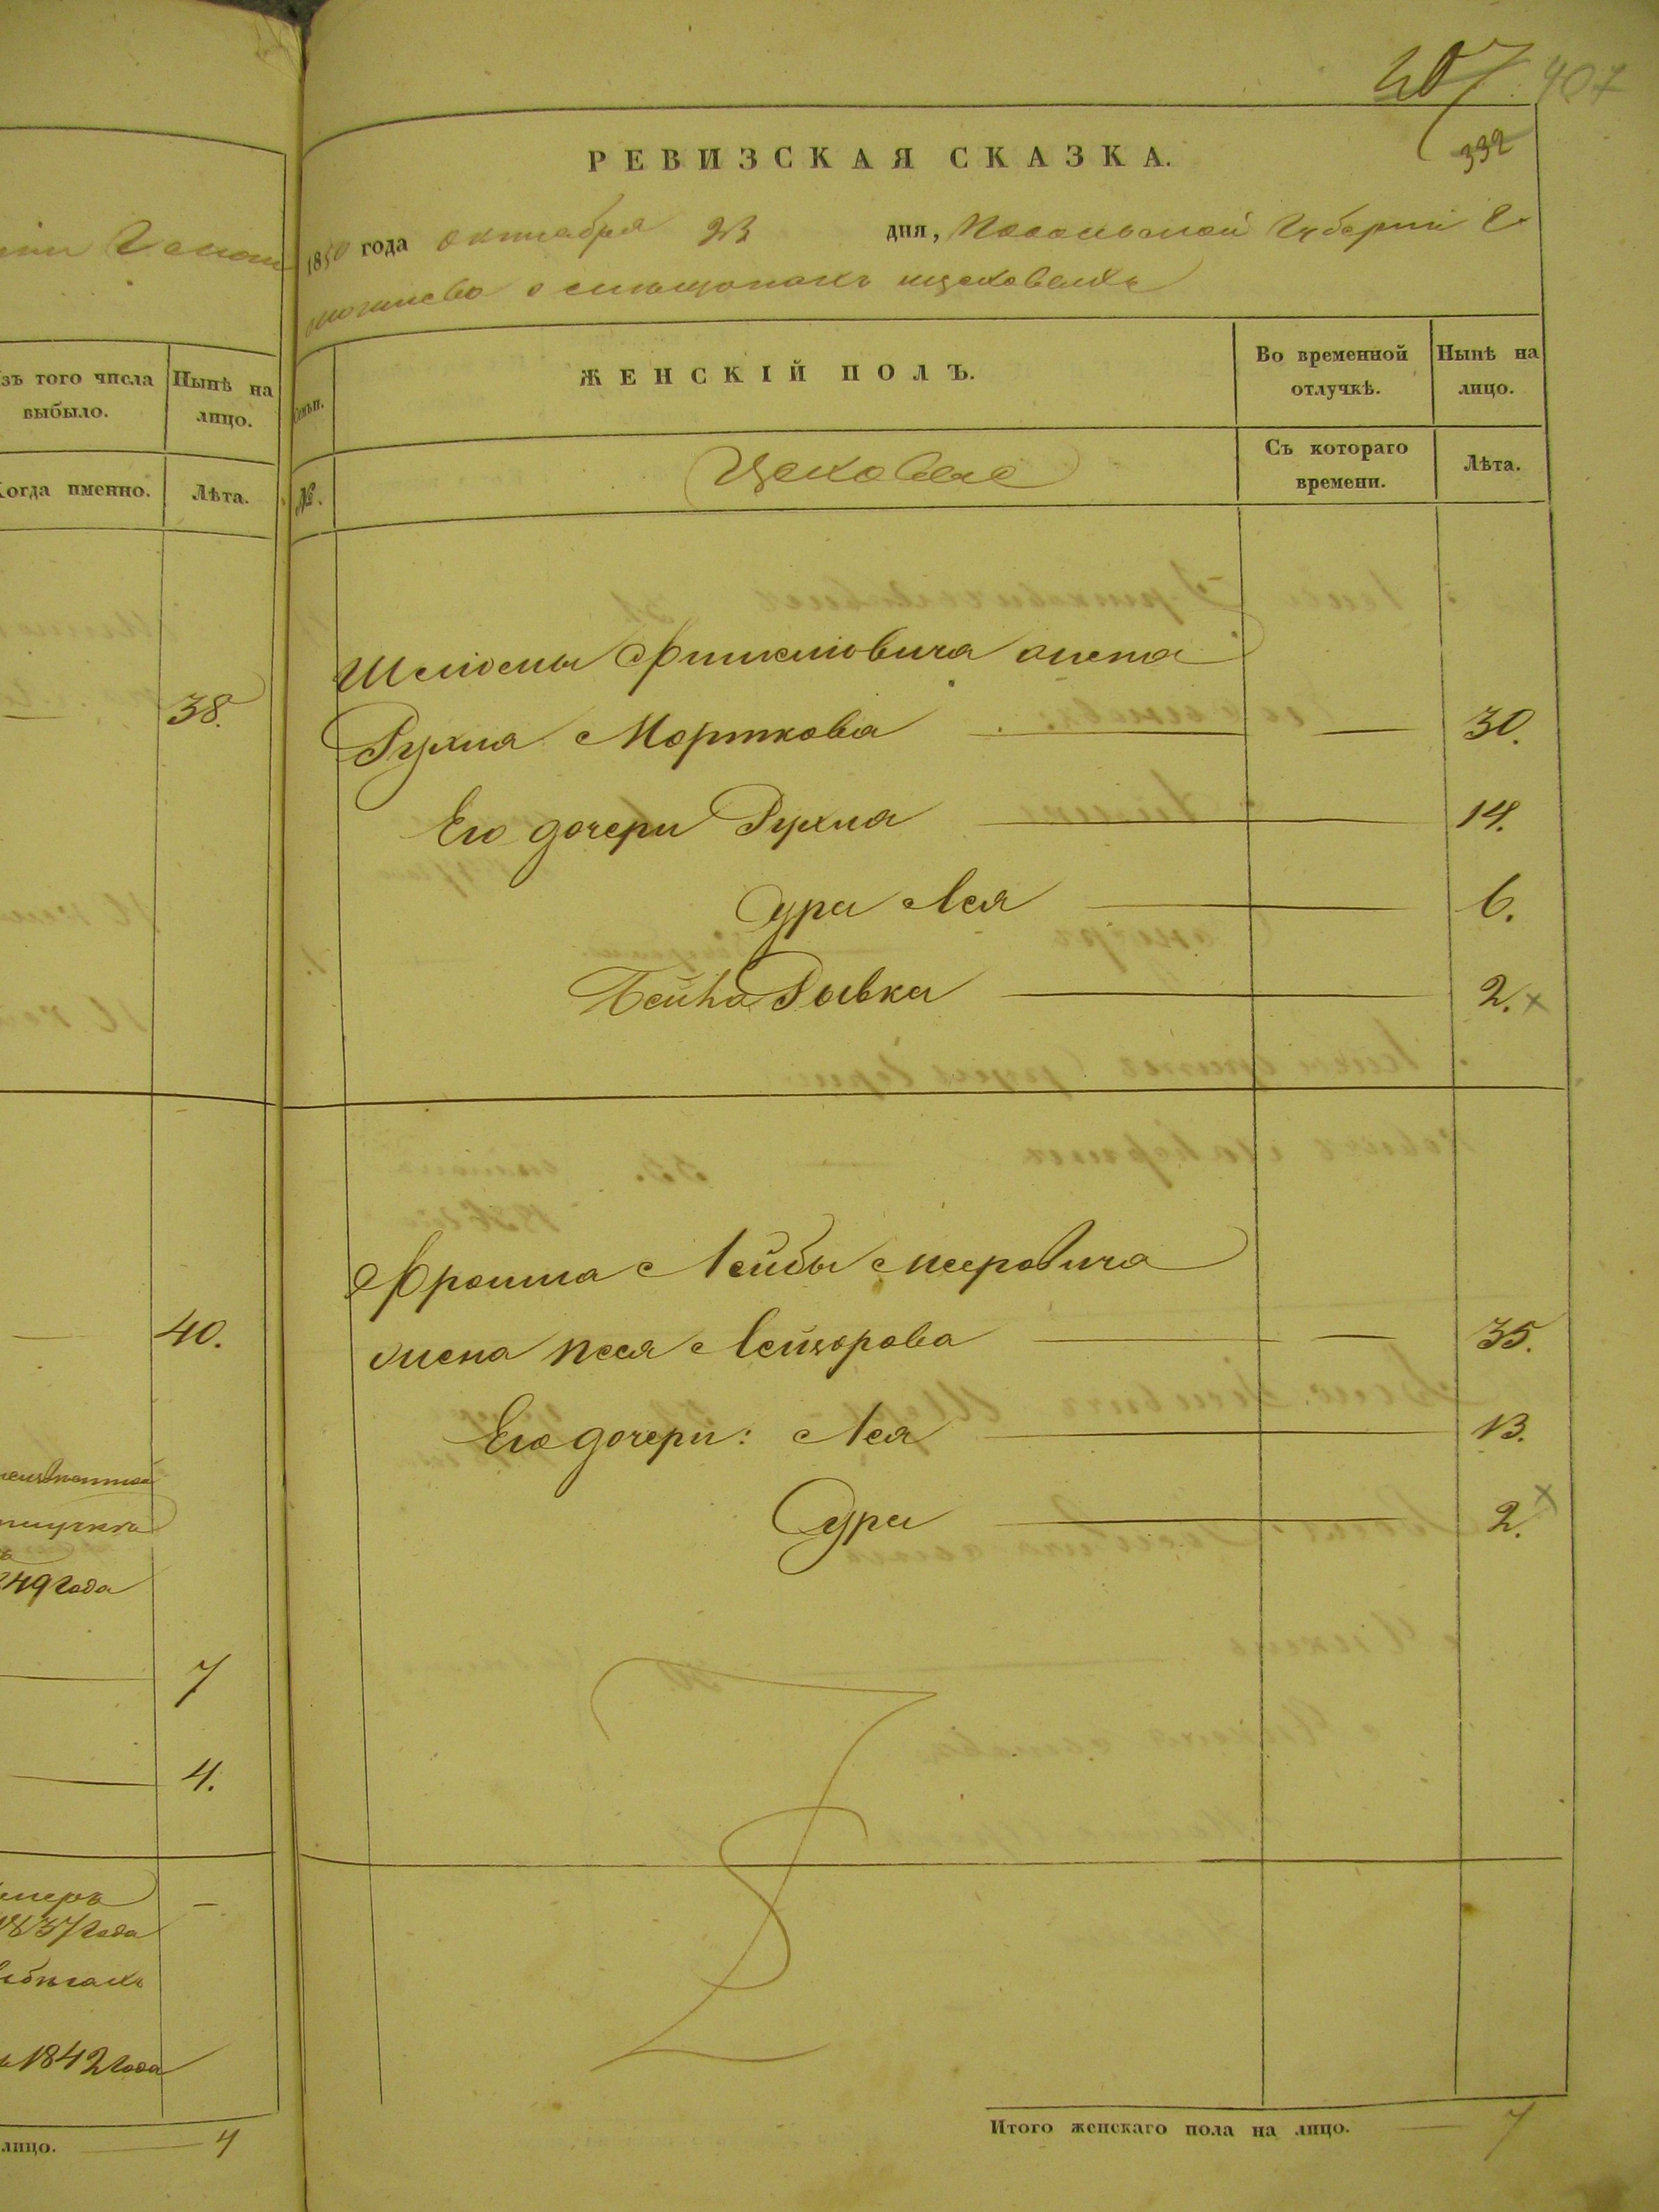 207 407
332
РЕВИЗСКАЯ СКАЗКА.
1850 года октября 23 дня, Подольской Губернии
о цеховыхъ
Семьи.
ЖЕНСКІЙ ПОЛЪ.
Во временной отлучкѣ.
Нынѣ на лицо.
№.
Цеховые
Съ котораго времени.
Лѣта.
Шлиомы жена
Рухля Морткова — 30.
Его дочери Рухля — 14.
Сура Лея — 6.
Рывка — 2. x
Фроима Лейбы Мееровича
жена Песя Лейзорова — 35.
Его дочери: Лея — 13.
Сура — 2. x
Итого женскаго пола на лицо. — 7
изъ того числа выбыло.
Нынѣ на лицо.
Когда именно.
Лѣта.
38.
40.
849 года
7
4.
умеръ —
1837 года
1842 года
лицо. — 4